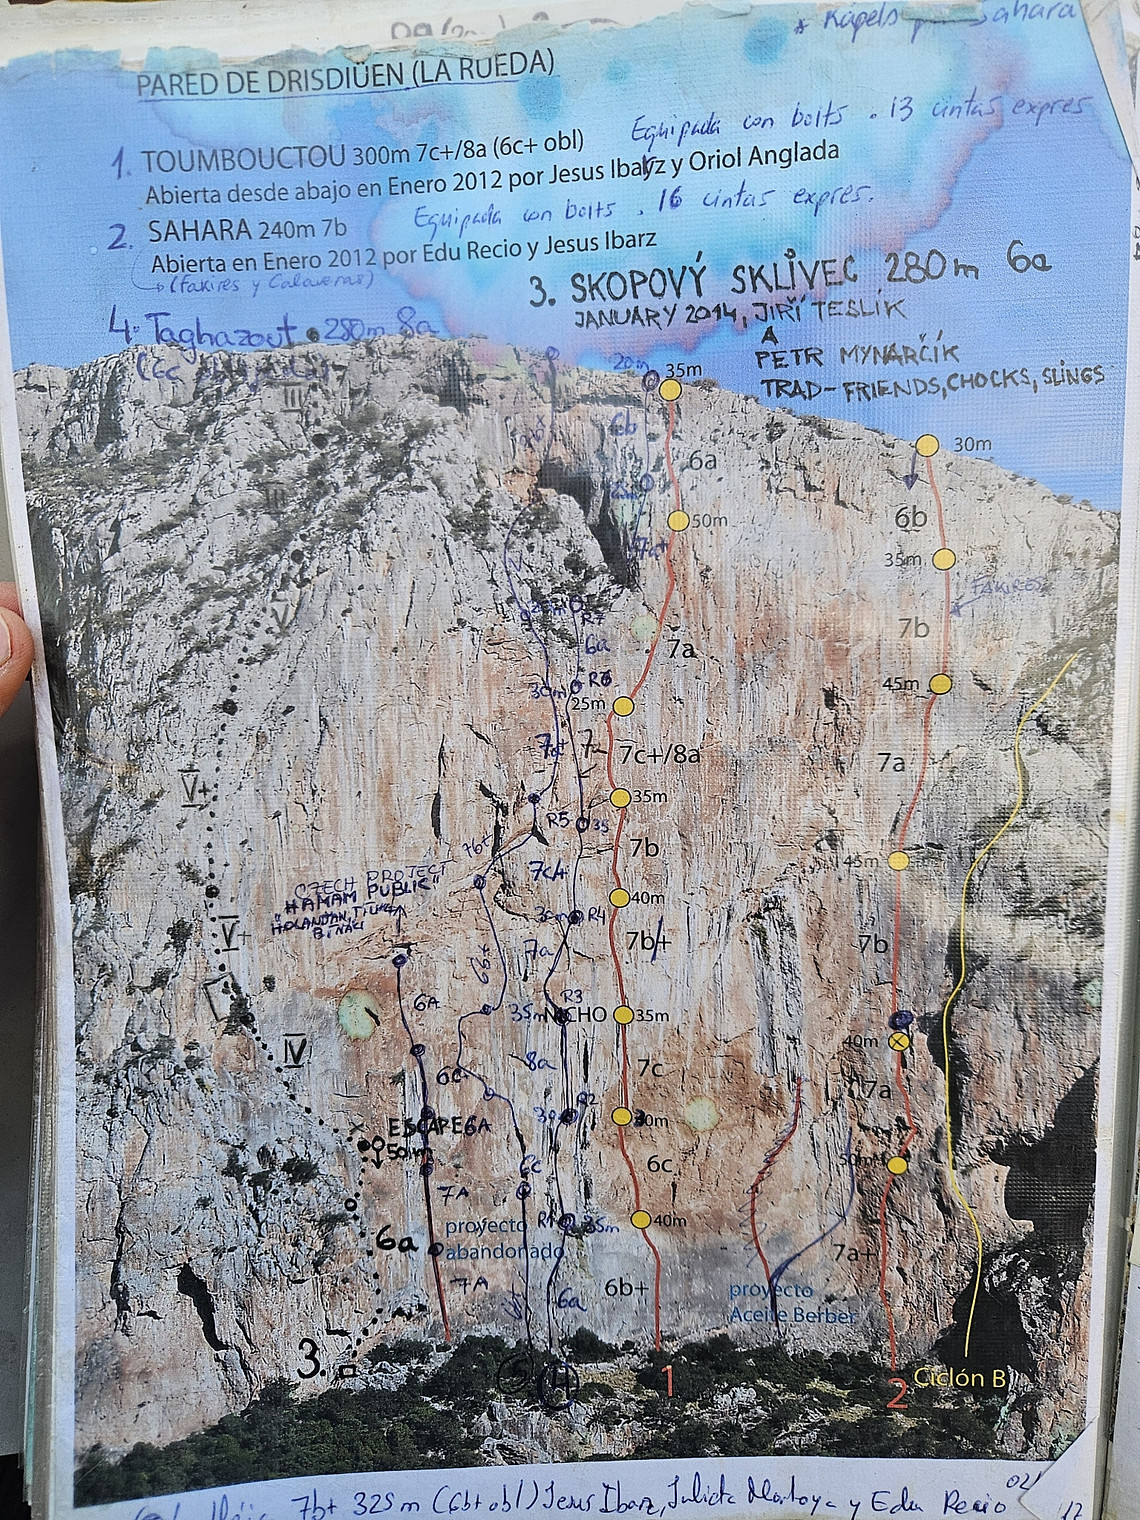 * Kapels Sahara
PARED DE DRISDIÜEN (LA RUEDA)
Equipada con bolts . 13 cintas expres
1. TOUMBOUCTOU 300m 7c+/8a (6c+ obl)
Abierta desde abajo en Enero 2012 por Jesus Ibarz y Oriol Anglada
Equipada con bolts . 16 cintas expres.
2. SAHARA 240m 7b
Abierta en Enero 2012 por Edu Recio y Jesus Ibarz
(Fakires y Calaveras)
3. SKOPOVÝ SKLIVEC 280m 6a
JANUARY 2014, JIŘÍ TESLÍK
A
PETR MYNARČÍK
TRAD-FRIENDS, CHOCKS, SLINGS
4. Taghazout 280m 8a
(6c
III
20m
35m
30m
6b
6a
III
50m
6b
7a+
35m
FAKIRES
V
R7
7b
6a
7a
R6
30m
25m
45m
7a
7c+/8a
7a
V+
35m
R5
35
7b+
7b
45m
7c+
CZECH PROJECT
"HAMAM PUBLIC"
40m
30m
R4
V+
7b+
7b
7a
6b+
6A
R3
35m
NICHO
35m
40m
IV
8a
7c
6c
7a
R2
30
30m
ESCAPE 6A
50m
6c
6c
50m
7A
R1
35m
40m
6a
proyecto
abandonado
7a+
7A
6b+
6a
6b+
proyecto
Aceite Berber
3.
5
4
1
2
Ciclón B
7b+ 325m (6b+ obl) Jesus Ibarz, Julieta Montoya y Edu Recio
02/
12